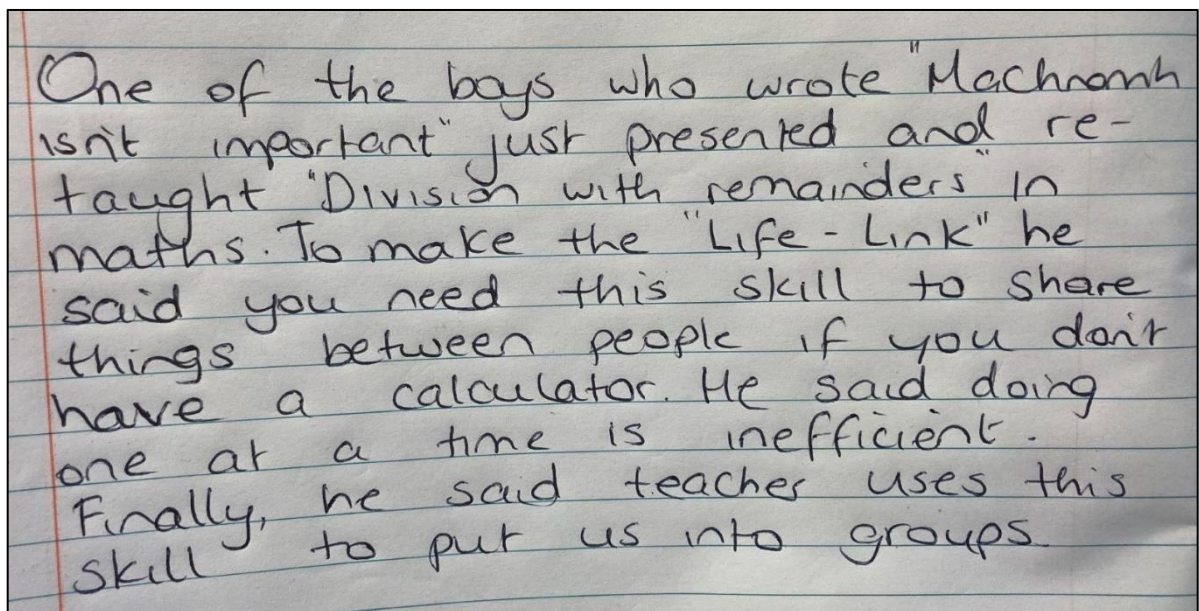 One of the boys who wrote "Machnamh
isn't important" just presented and re-
taught "Division with remainders" in
maths. To make the "Life-Link" he
said you need this skill to share
things between people if you don't
have a calculator. He said doing
one at a time is inefficient.
Finally, he said teacher uses this
skill to put us into groups.